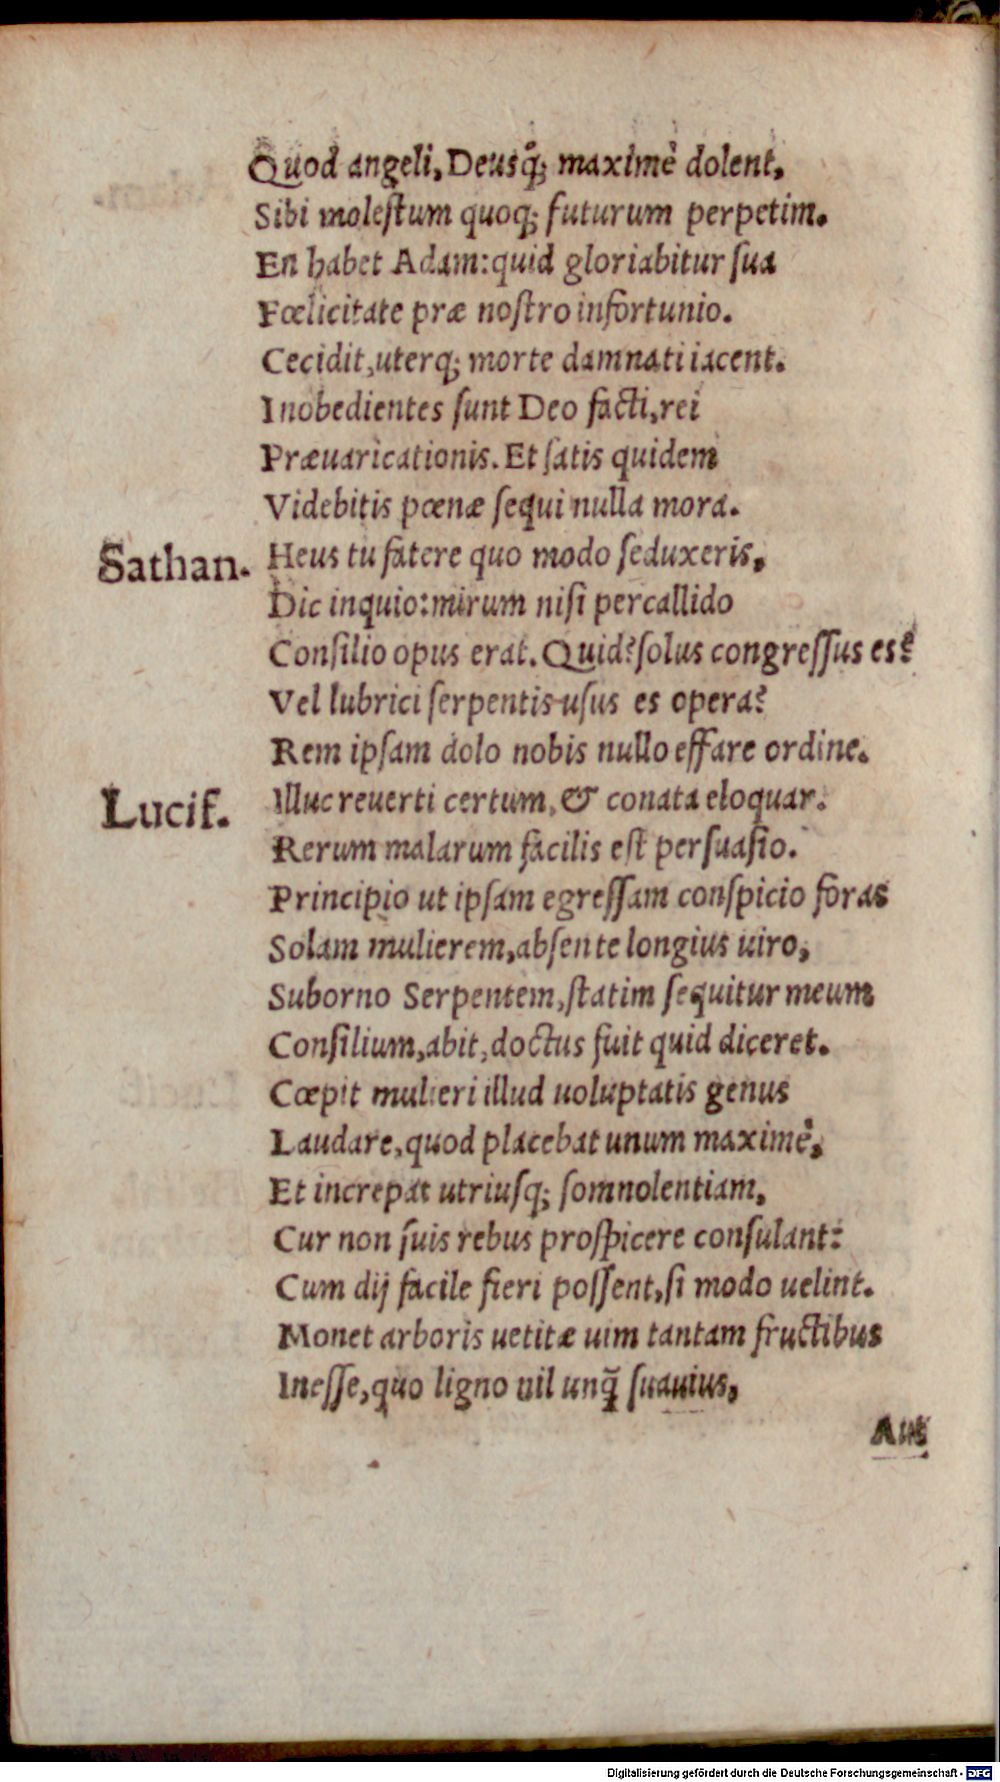 Quod angeli, Deusq́; maximè dolent,
Sibi moleſtum quoq; futurum perpetim.
En habet Adam: quid gloriabitur ſua
Fœlicitate præ noſtro infortunio.
Cecidit, uterq; morte damnati iacent.
Inobedientes ſunt Deo facti, rei
Præuaricationis. Et ſatis quidem
Videbitis pœnæ ſequi nulla mora.
Sathan. Heus tu fatere quo modo ſeduxeris,
Dic inquio: mirum niſi percallido
Conſilio opus erat. Quid? ſolus congreſſus es?
Vel lubrici ſerpentis uſus es opera?
Rem ipſam dolo nobis nullo effare ordine.
Lucif. Illuc reuerti certum, & conata eloquar.
Rerum malarum facilis eſt perſuaſio.
Principio ut ipſam egreſſam conſpicio foras
Solam mulierem, abſente longius uiro,
Suborno Serpentem, ſtatim ſequitur meum
Conſilium, abit, doctus fuit quid diceret.
Cœpit mulieri illud uoluptatis genus
Laudare, quod placebat unum maximè,
Et increpat utriuſq; ſomnolentiam,
Cur non ſuis rebus proſpicere conſulant:
Cum dij facile fieri poſſent, ſi modo uelint.
Monet arboris uetitæ uim tantam fructibus
Ineſſe, quo ligno nil unq̃ ſuauius,
Aut
Digitalisierung gefördert durch die Deutsche Forschungsgemeinschaft - DFG